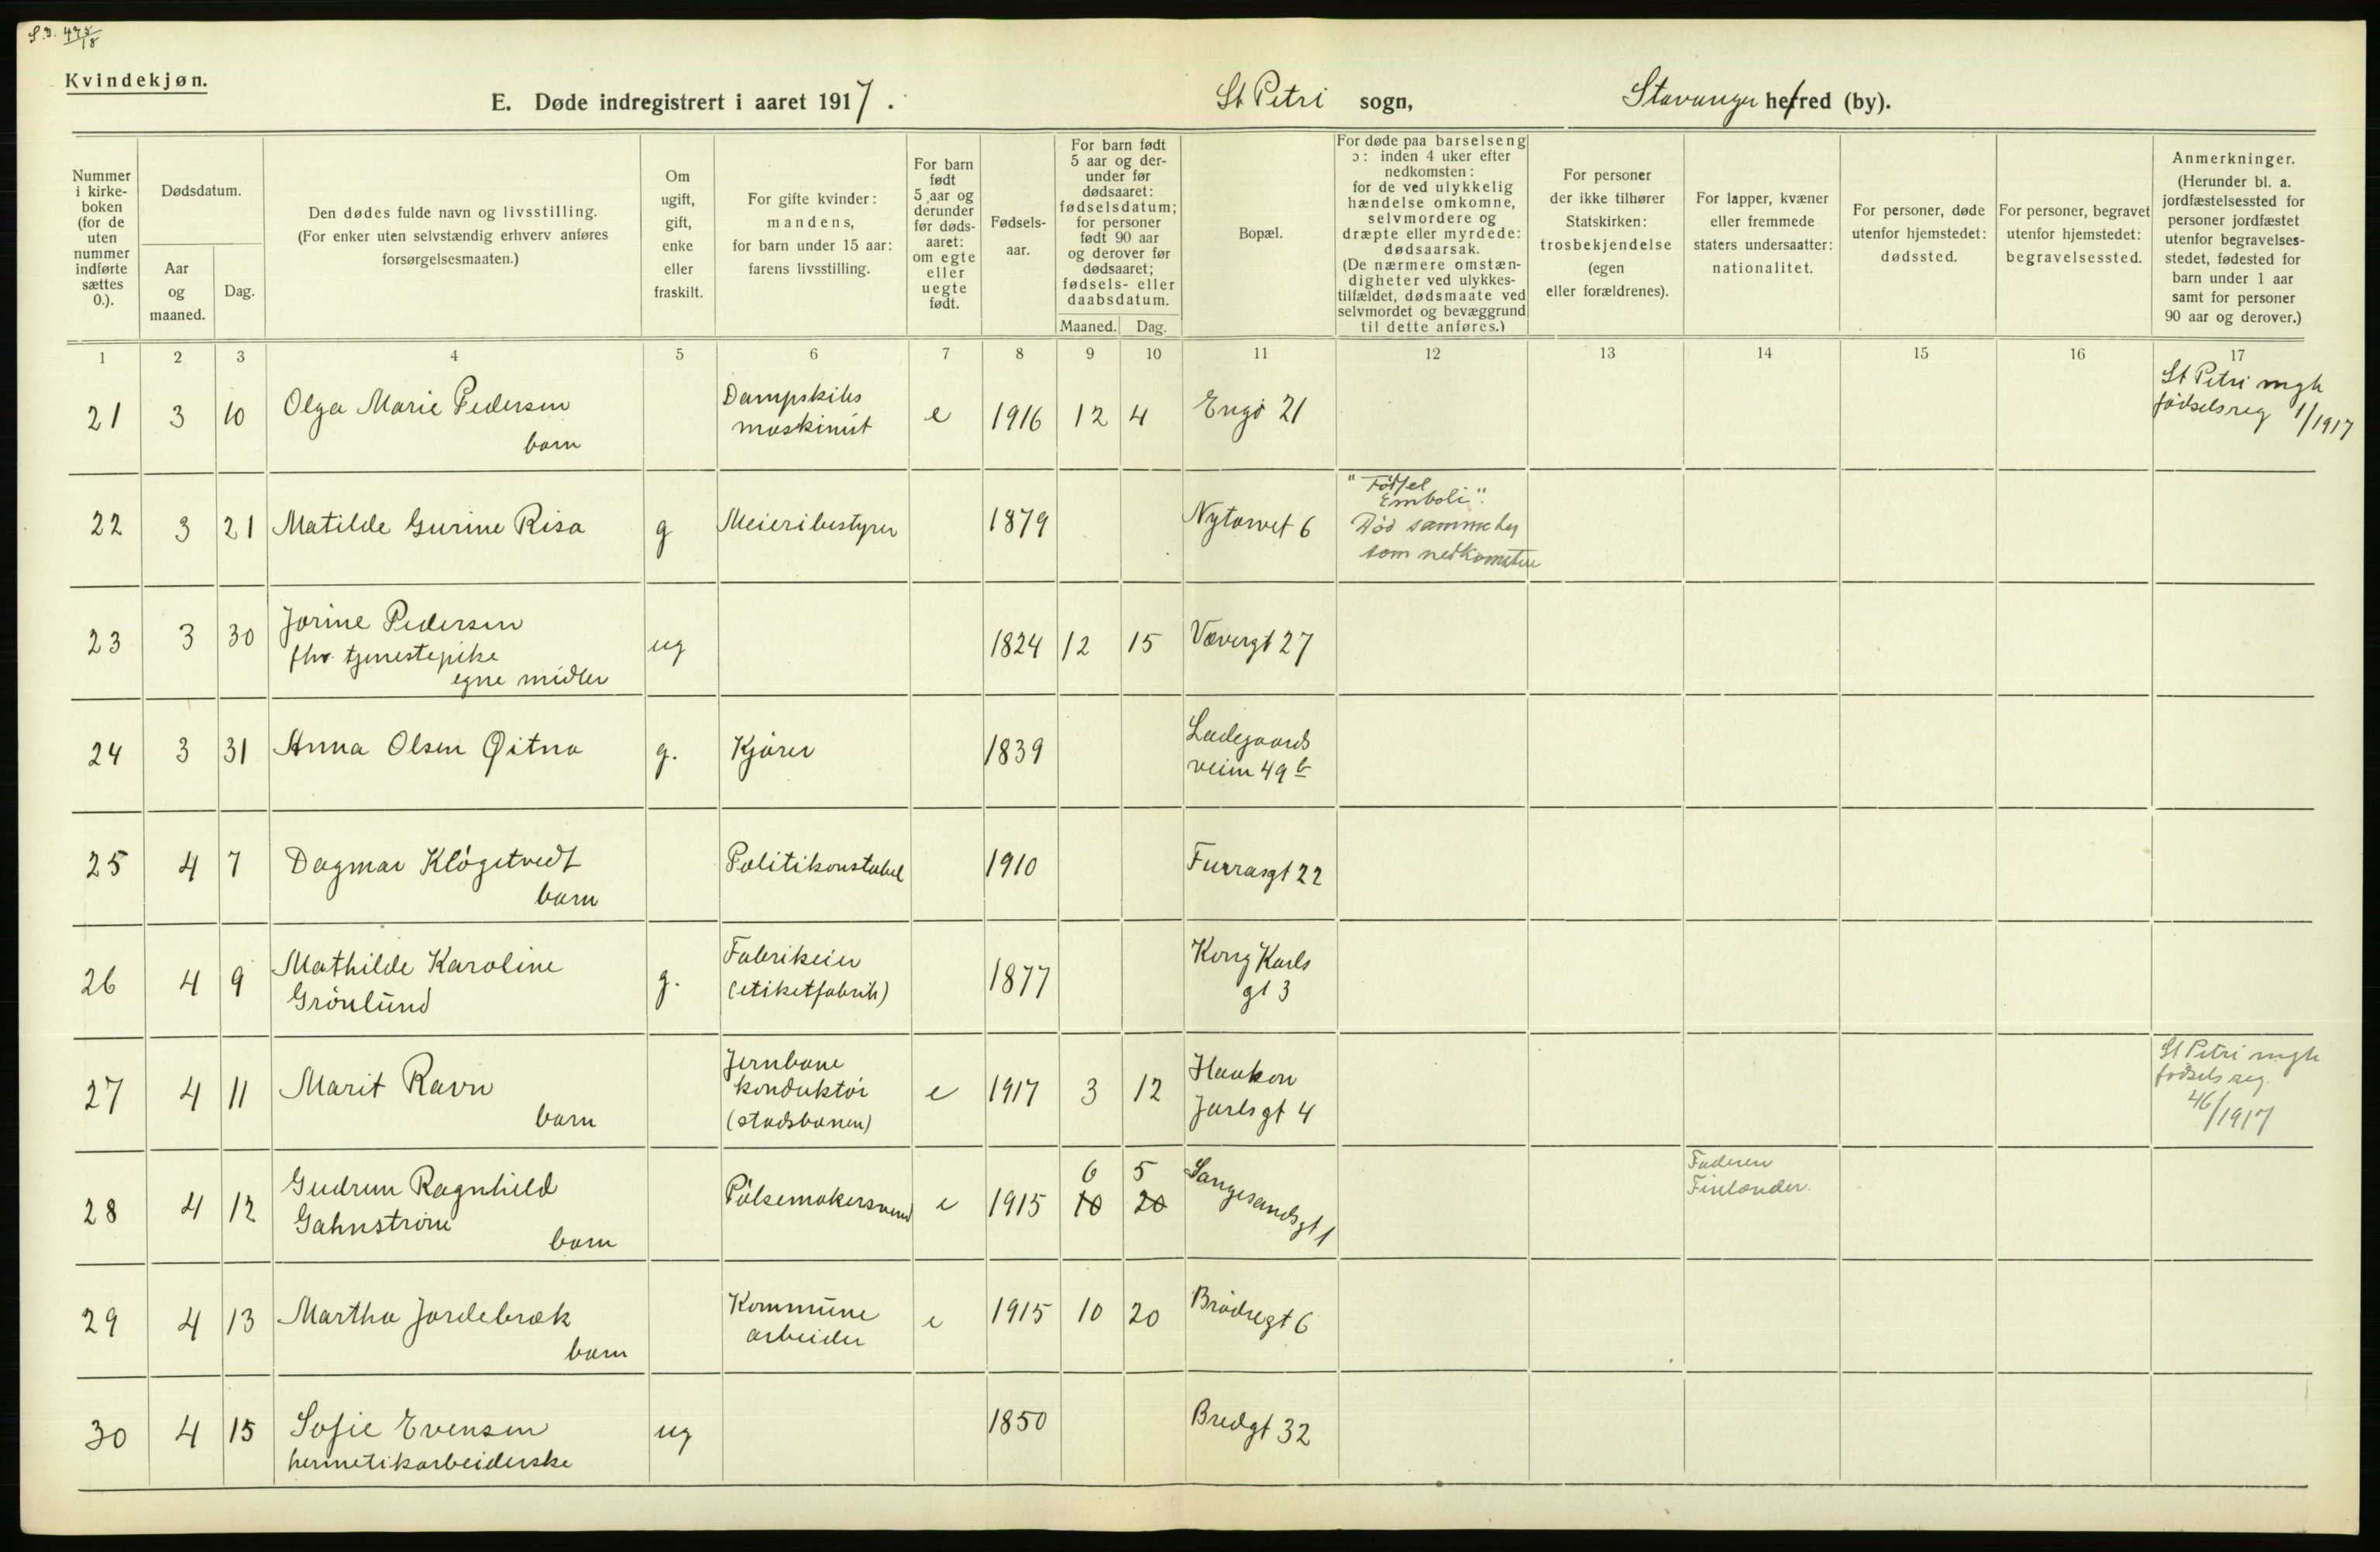 S.D. 475/18
Kvindekjøn.
E. Døde indregistrert i aaret 1917. St Petri sogn, Stavanger herred (by).
Nummer i kirke-boken (for de uten nummer indførte sættes 0.).
Dødsdatum.
Aar og maaned.
Dag.
Den dødes fulde navn og livsstilling.
(For enker uten selvstændig erhverv anføres forsørgelsesmaaten.)
Om ugift, gift, enke eller fraskilt.
For gifte kvinder: mandens, for barn under 15 aar: farens livsstilling.
For barn født 5 aar og derunder før døds-aaret: om egte eller uegte født.
Fødsels-aar.
For barn født 5 aar og der-under før dødsaaret: fødselsdatum; for personer født 90 aar og derover før dødsaaret; fødsels- eller daabsdatum.
Maaned. Dag.
Bopæl.
For døde paa barselseng ɔ: inden 4 uker efter nedkomsten: for de ved ulykkelig hændelse omkomne, selvmordere og dræpte eller myrdede: dødsaarsak. (De nærmere omstæn-digheter ved ulykkes-tilfældet, dødsmaate ved selvmordet og bevæggrund til dette anføres.)
For personer der ikke tilhører Statskirken: trosbekjendelse (egen eller forældrenes).
For lapper, kvæner eller fremmede staters undersaatter: nationalitet.
For personer, døde utenfor hjemstedet: dødssted.
For personer, begravet utenfor hjemstedet: begravelsessted.
Anmerkninger. (Herunder bl. a. jordfæstelsessted for personer jordfæstet utenfor begravelses-stedet, fødested for barn under 1 aar samt for personer 90 aar og derover.)
1 2 3 4 5 6 7 8 9 10 11 12 13 14 15 16 17
21 3 10 Olga Marie Pedersen barn Dampskibs maskinist e 1916 12 4 Engø 21 St Petri mgh fødselsreg 1/1917
22 3 21 Matilde Gurine Risa g Meieribestyrer 1879 Nytorvet 6 "Fødsel Emboli". Død samme dag som nedkomsten
23 3 30 Jorine Pedersen fhv. tjenestepike egne midler ug 1824 12 15 Vævergt 27
24 3 31 Anna Olsen Øitna g. Kjører 1839 Ladegaards veien 49 b
25 4 7 Dagmar Kløgetvedt barn Politikonstabel 1910 Furrasgt 22
26 4 9 Mathilde Karoline Grönlund g. Fabrikeier (etiketfabrik) 1877 Kong Karls gt 3
27 4 11 Marit Ravn barn Jernbane konduktør (stadsbanen) e 1917 3 12 Haakon Jarlsgt 4 St Petri mgh fødselsreg. 46/1917
28 4 12 Gudrun Ragnhild Gahnstrøm barn Pølsemakersvend e 1915 6 10 5 20 Langesandsgt 1 Faderen Finlænder.
29 4 13 Martha Jordebræk barn Kommune arbeider e 1915 10 20 Brødregt 6
30 4 15 Sofie Evensen hermetikarbeiderske ug 1850 Bredgt 32